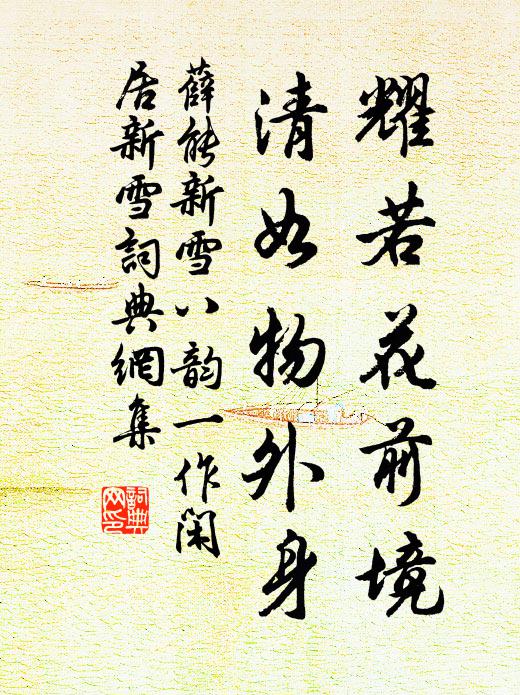 耀若花前境
清如物外身
薛能新雪八韵一作闲
居新雪詞典網集
詞典
网印